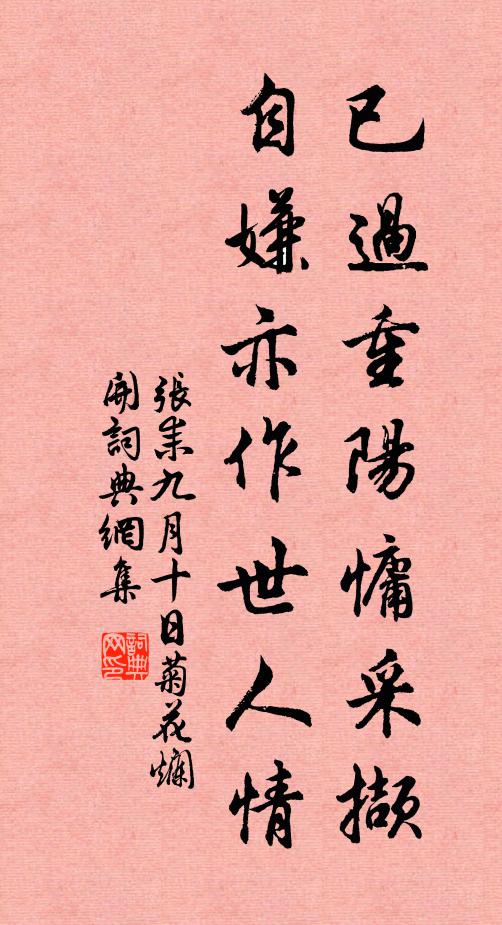 已過重陽慵采擷
自嫌亦作世人情
張耒九月十日菊花爛
開詞典網集
詞典
网印